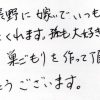 長野に嫁いでいつも
くれます。孫も大好き
巣ごもりを作って頂
とうございます。